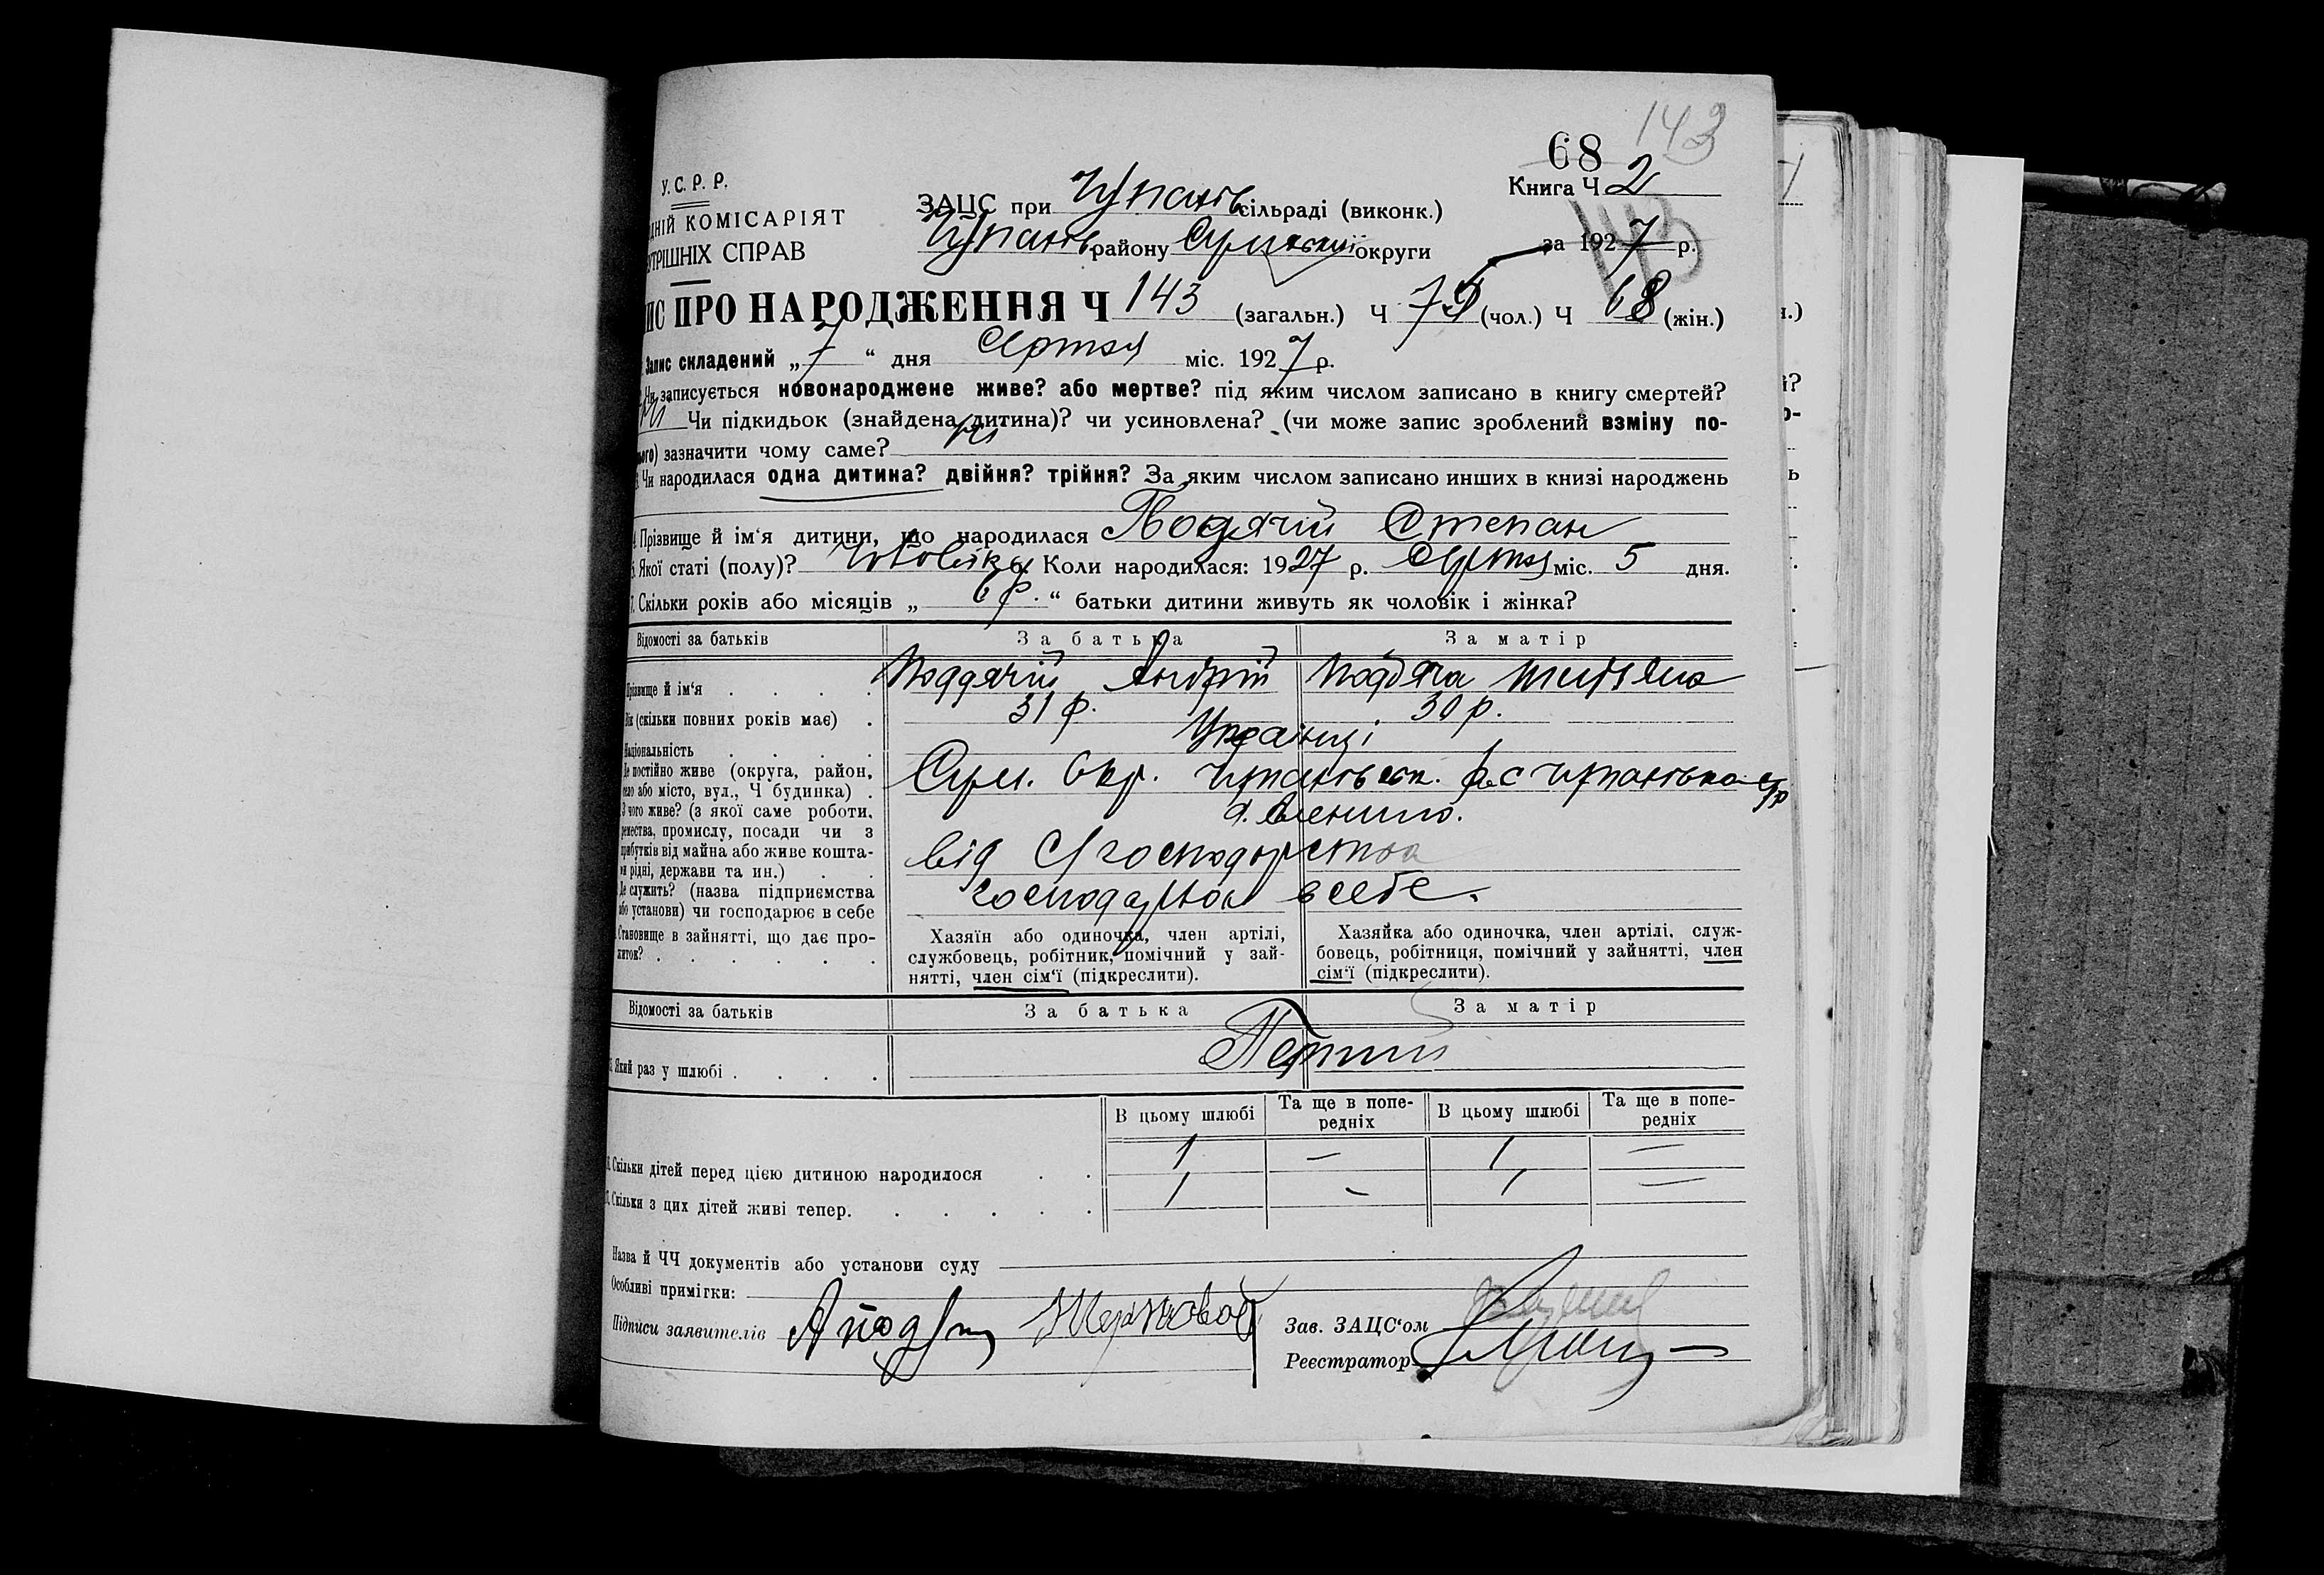 143
68
Книга Ч 2
У. С. Р. Р.
ДНІЙ КОМІСАРІЯТ
УТРІШНІХ СПРАВ
ЗАЦС при Чупахів сільраді (виконк.)
Чупахів району Сумської округи
за 1927 р.
143
ИС ПРО НАРОДЖЕННЯ Ч 143 (загальн.) Ч 75 (чол.) Ч 68 (жін.)
Запис складений „7“ дня Серпня міс. 1927 р.
Чи записується новонароджене живе? або мертве? під яким числом записано в книгу смертей?
Ні Чи підкидьок (знайдена дитина)? чи усиновлена? (чи може запис зроблений взміну по-
ього) зазначити чому саме? Ні
3. Чи народилася одна дитина? двійня? трійня? За яким числом записано инших в книзі народжень
4. Прізвище й ім‘я дитини, що народилася Подячій Степан
5. Якої статі (полу)? Чоловік 6. Коли народилася: 1927 р. Серпня міс. 5 дня.
7. Скільки років або місяців „6 р.“ батьки дитини живуть як чоловік і жінка?
Відомості за батьків За батька За матір
Прізвище й ім‘я . . . . Поддячій Андрій Подяча
Вік (скільки повних років має) . 31 р. 30 р.
Національність . . . . Українці
Де постійно живе (округа, район, село або місто, вул., Ч будинка) . Сум. Окр.
З чого живе? (з якої саме роботи, ремества, промислу, посади чи з прибутків від майна або живе кошта-ми рідні, держави та ин.) . . від С/господорства
Де служить? (назва підприємства або установи) чи господарює в себе господарює в себе.
Становище в зайнятті, що дає про-житок? . . . . . .
Хазяїн або одиночка, член артілі, службовець, робітник, помічний у зай-нятті, член сім‘ї (підкреслити).
Хазяйка або одиночка, член артілі, служ-бовець, робітниця, помічний у зайнятті, член сім‘ї (підкреслити).
Відомості за батьків За батька За матір
Який раз у шлюбі . . . . Перший
В цьому шлюбі Та ще в попе-редніх В цьому шлюбі Та ще в попе-редніх
Скільки дітей перед цією дитиною народилося . . 1 — 1 —
Скільки з цих дітей живі тепер. . . . . . 1 - 1 —
Назва й ЧЧ документів або установи суду
Особливі примітки:
Підписи заявителів
Зав. ЗАЦС‘ом
Реєстратор